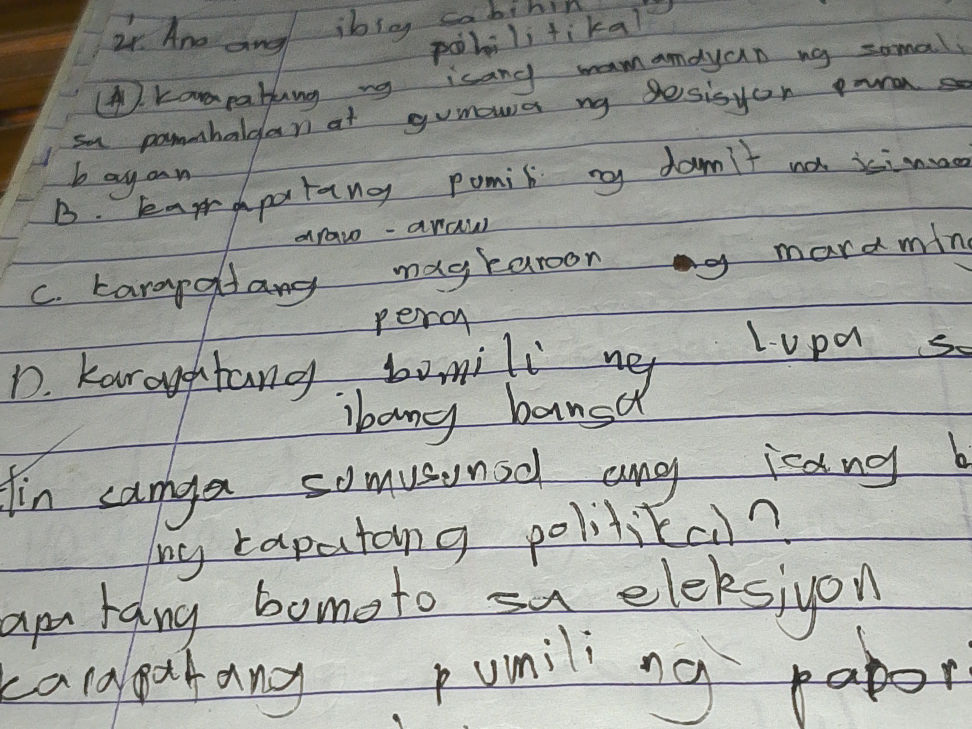 2. Ano ang ibig sabihin
pohilitikal
A. karapatang ng isang mamamdyan ng somali
sa pamahaldan at gumawa ng desisyon para sa
bayan
B. karapatang pumili ng damit na
araw-araw
C. karapatang magkaroon ng maraming
pera
D. karapatang bumili ng lupa sa
ibang bansa
tin samga sumusunod ang isang b
ng kapatang politikal?
apa tang bumoto sa eleksiyon
karapatang pumili ng pabori